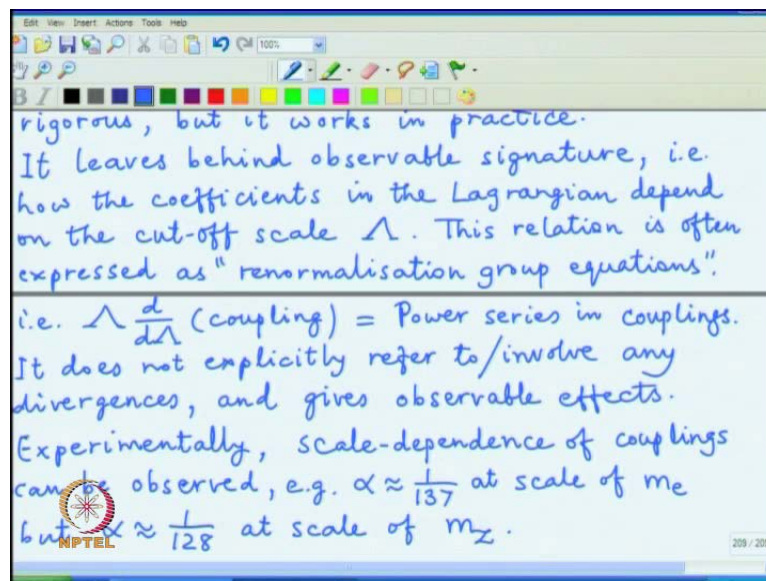 Edit View Insert Actions Tools Help
100%
B I
rigorous, but it works in practice.
It leaves behind observable signature, i.e.
how the coefficients in the Lagrangian depend
on the cut-off scale Λ. This relation is often
expressed as "renormalisation group equations".
i.e. Λ d/dΛ (coupling) = Power series in couplings.
It does not explicitly refer to/involve any
divergences, and gives observable effects.
Experimentally, scale-dependence of couplings
can be observed, e.g. α ≈ 1/137 at scale of me
but α ≈ 1/128 at scale of mz.
NPTEL
209 / 209